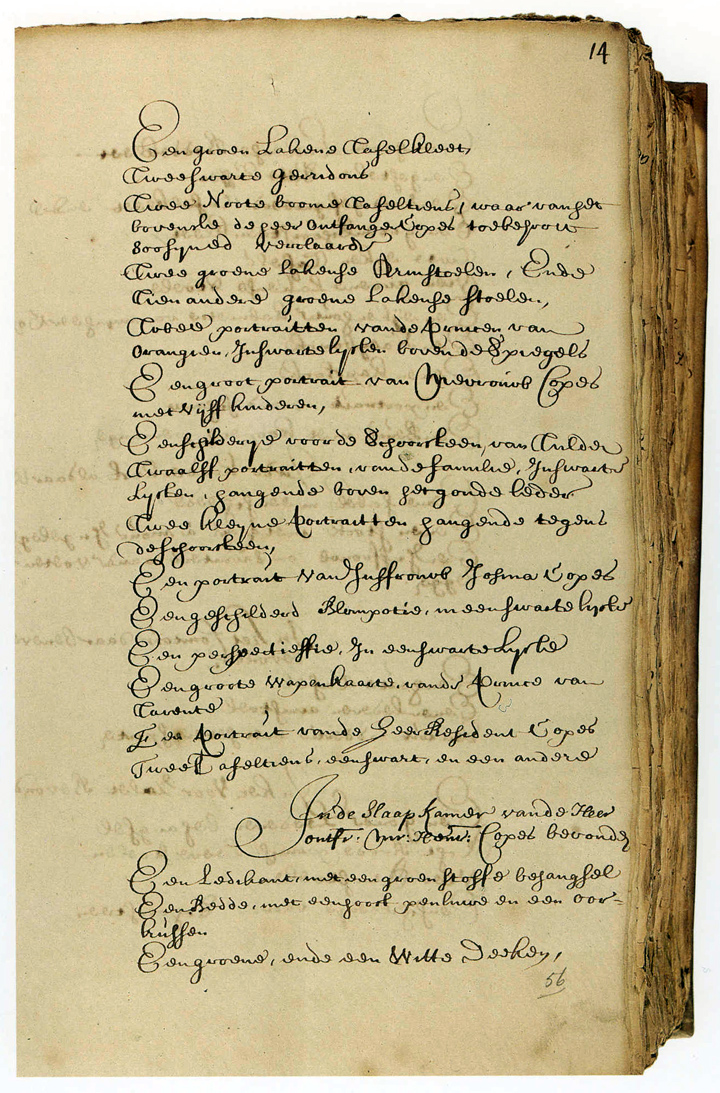 14
Een groen Lakene Tafelkleet,
Twee swarte gerridons
Twee Noote boome Tafeltiens, waar van het
bovenste de heer Ontfanger Copes toebehoort
soo sijn Ed verclaarde
Twee groene Lakense Armstoelen, Ende
Tien andere groene Lakense stoelen,
Twee portraitten vande Princen van
Orangien, In swarte lysten boven de Spiegels
Een groot portrait van Mevrouw Copes
met vijff kinderen,
Een schilderye voor de Schoorsteen, van Tulden
Twaalff portraitten, van de familie, In swarte
Lysten, hangende boven het goude leder
Twee kleyne Portraitten hangende tegens
de schoorsteen,
Een portrait van Juffrouw Josina Copes
Een geschilderd Blompotie, in een swarte lyste
Een perspectieffie, In een swarte Lyste
Een groote wapenkaarte, vande Prince van
Tarente
Een Portrait vande Heer Resident Copes
Twee Tafeltiens, een swart, en een andere
In de Slaap Kamer vande Heer
ontfr: Mr: Henr: Copes bevonden
Een Ledikant, met een groen stoffe behanghsel
Een Bedde, met een hooft peuluwe en een oor-
kussen
Een groene, ende een Witte Deeken,
56